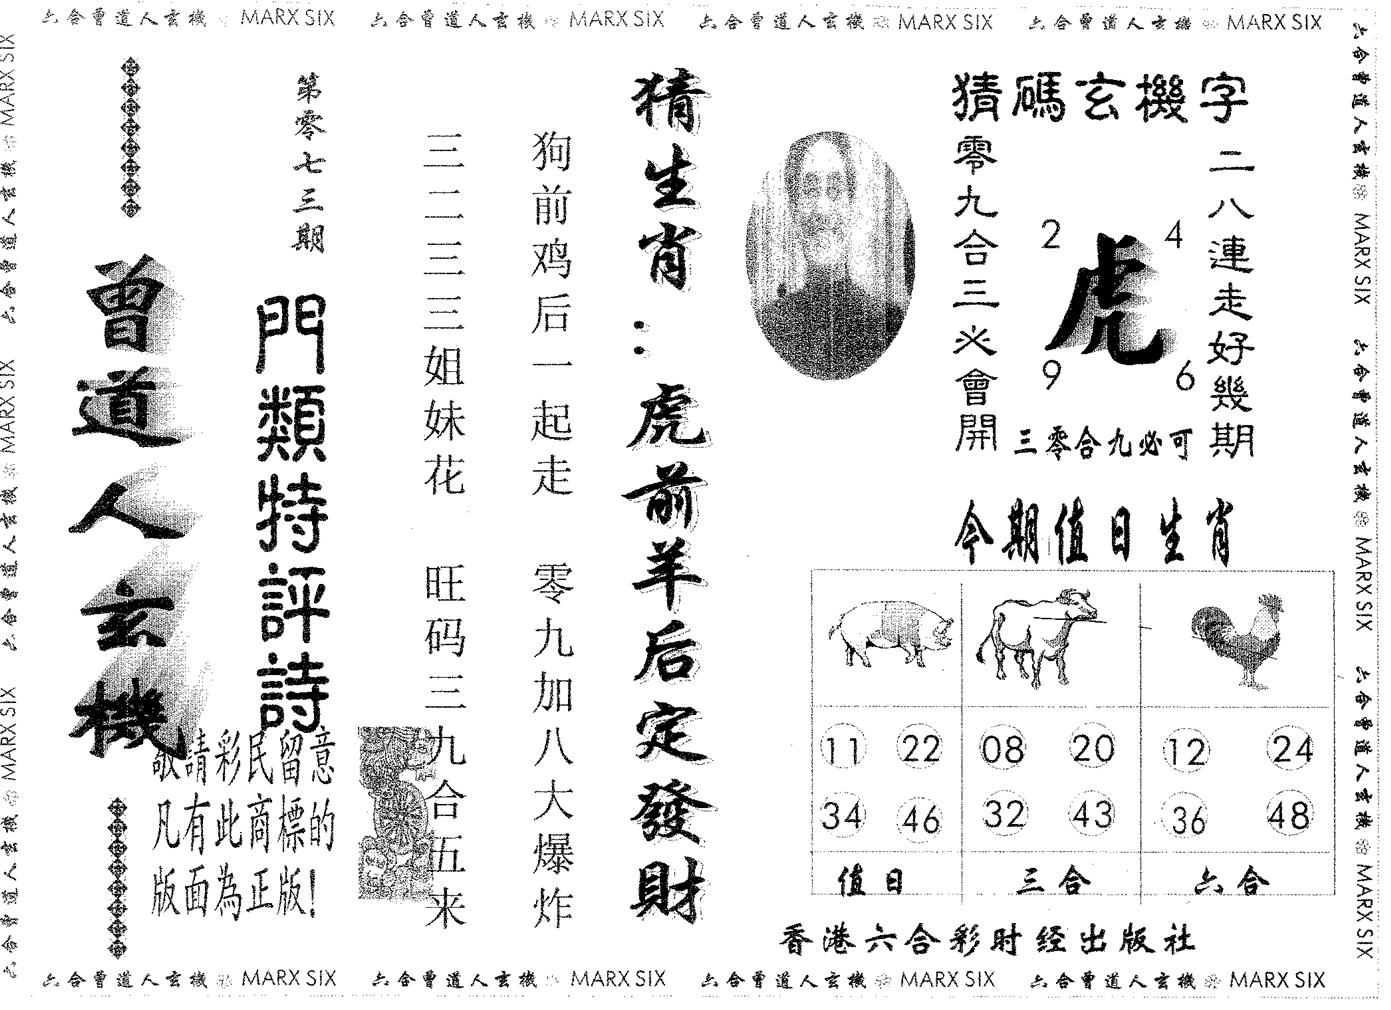 六合曾道人玄機 MARX SIX 六合曾道人玄機 MARX SIX 六合曾道人玄機 MARX SIX 六合曾道人玄機 MARX SIX
六合曾道人玄機 MARX SIX 六合曾道人玄機 MARX SIX 六合曾道人玄機 MARX SIX
曾道人玄機
第零七三期
門類特評詩
敬請彩民留意
凡有此商標的
版面為正版!
猜生肖:虎前羊后定發財
狗前鸡后一起走 零九加八大爆炸
三二三三姐妹花 旺码三九合五来
猜碼玄機字
二八連走好幾期
零九合三必會開
2 4
虎
9 6
三零合九必可
今期值日生肖
11 22 08 20 12 24
34 46 32 43 36 48
值日 三合 六合
香港六合彩时经出版社
六合曾道人玄機 MARX SIX 六合曾道人玄機 MARX SIX 六合曾道人玄機 MARX SIX
六合曾道人玄機 MARX SIX 六合曾道人玄機 MARX SIX 六合曾道人玄機 MARX SIX 六合曾道人玄機 MARX SIX